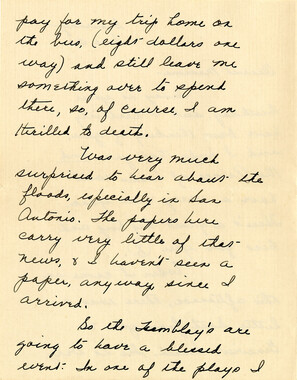 pay for my trip home on
the bus, (eight dollars one
way) and still leave me
something over to spend
there, so, of course, I am
thrilled to death.
Was very much
surprised to hear about the
floods, especially in San
Antonio. The papers here
carry very little of that
news, & I haven't seen a
paper, anyway, since I
arrived.
So the Tremblay's are
going to have a blessed
event. In one of the plays I